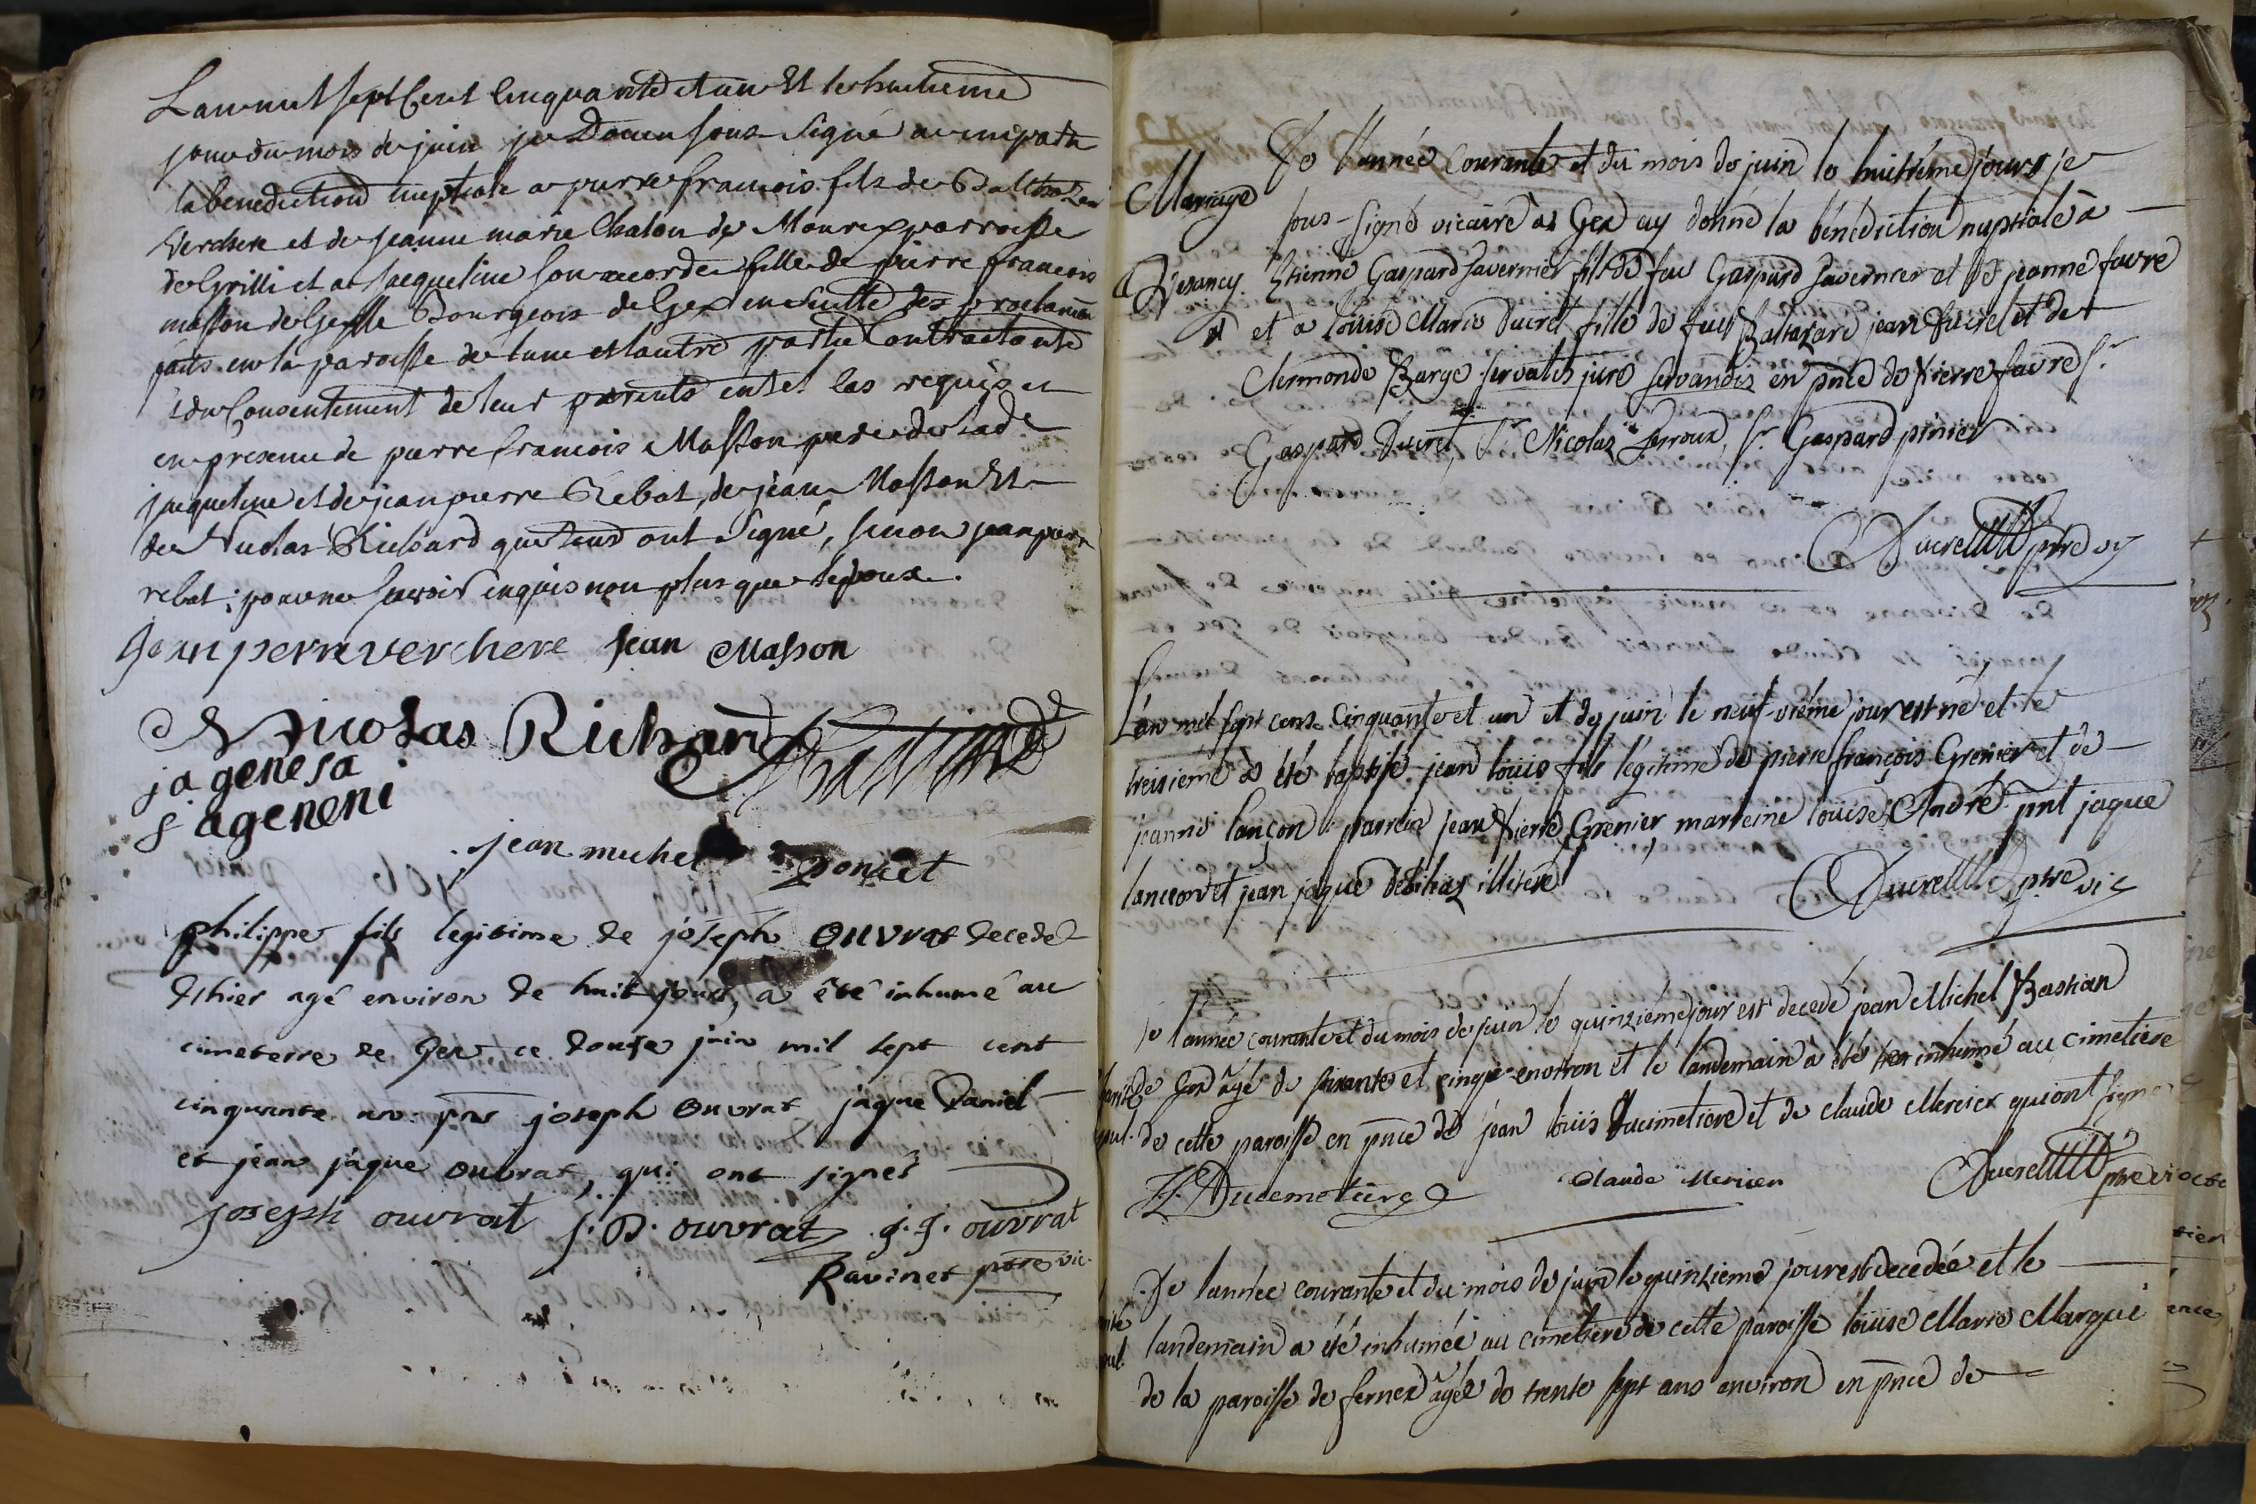 L'an mil sept Cent Cinquante et un Et le huitieme
jour du mois de juin je Doyen sous-signé ay imparti
la benediction nuptiale a pierre francois fils de Balthazar
Verchere et de jeanne marie Chalon de Mourex parroisse
de Grilli et a jacqueline fille de pierre francois
masson de Bourgeois de Gex ensuitte des proclamãon
faits en la paroisse de lune et lautre partie Contractante
Consentement de leur parents requis et
en presence de pierre francois Masson pere de lad.
jacqueline et de jean pierre Rebat, de jean Masson Et
de Nicolas Richard qui tous ont Signé, sinon jean pierre
rebat pour ne scavoir enquis non plus que lepouse.
Jean perre verchere Jean Masson
Nicolas Richard
jagenesa
jageneni
jean michel Poncet
philippe fils legitime de joseph Ouvrat decedé
d'hier agé environ de huit jours, a êté inhumé au
cimeterre de Gex ce douse juin mil sept cent
cinquante un pñs joseph Ouvrat jaque Daniel
et jean jâque Ouvrat, qui ont signés
joseph ouvrat j. D. ouvrat j. j. ouvrat
Ravinet ptre vic.
Mariage
De l'année Courante et du mois de juin le huitième jour je
sous-signé vicaire à Gex ay donné la bénédiction nuptiale à
Etienne Gaspard Javernier fils de feu Gaspard Javernier et de jeanne favre
de Vesancy
et a louise Marie Ducret fille de feu Baltazard jean Ducret et de
Clermonde Barge servatis jure servandis en pñce de Pierre favre Sr
Gaspard Ducret, Sr Nicolas Leroux, Sr Gaspard pinier
Ducret ptre vic
L'an mil sept cens Cinquante et un et de juin le neuf vième jour est né et le
treisieme a été baptisé jean louis fils légitime de pierre françois Grenier et de
jeanne lançon parrein jean Pierre Grenier, marreine louise André pnt jaque
lançon et jean jaque illiteré
Ducret ptre vic
De l'année courante et du mois de juin le quinzième jour est decedé jean Michel Bastian
de Gex âgé de soixante et cinq environ et le landemain à été inhumé au cimetiere
de cette paroisse en pñce de jean louis Ducimetiere et de claude Mercier qui ont signé
J L Ducemetiere Claude Mercier Ducret ptre vic
De l'année courante et du mois de juin le quinzieme jour est decedée et le
landemain a été inhumée au cimetiere de cette paroisse louise Marie Marqui
de la paroisse de fernex âgée de trente sept ans environ en pñce de